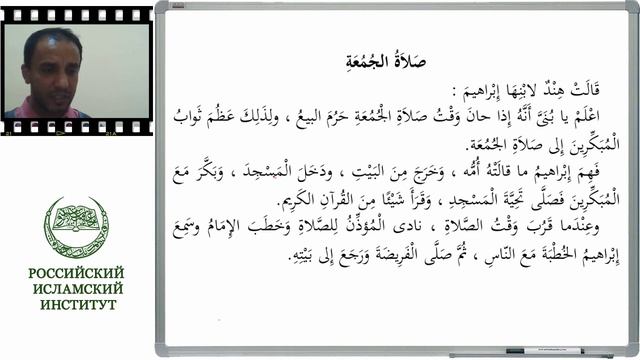 صَلاَةُ الجُمُعَةِ
قَالَتْ هِنْدٌ لابْنِهَا إِبْراهيمَ :
اعْلَمْ يا بُنَيَّ أَنَّهُ إِذا حانَ وَقْتُ صَلاَةِ الْجُمُعَةِ حَرُمَ البيعُ ، ولِذَلِكَ عَظُمَ ثَوابُ
الْمُبَكِّرِينَ إِلى صَلاَةِ الجُمُعَة.
فَهِمَ إِبْراهيمُ ما قالَتْهُ أُمُّه ، وَخَرَجَ مِنَ البَيْتِ ، ودَخَلَ الْمَسْجِدَ ، وَبَكَّرَ مَعَ
الْمُبَكِّرِينَ فَصَلَّى تَحِيَّةَ الْمَسْجِدِ ، وَقَرَأَ شَيْئًا مِنَ القُرآنِ الكَرِيم.
وعِنْدَما قَرُبَ وَقْتُ الصَّلاةِ ، نادى الْمُؤَذِّنُ لِلصَّلاةِ وَخَطَبَ الإِمَامُ وسَمِعَ
إِبْراهيمُ الخُطْبَةَ مَعَ النّاسِ ، ثُمَّ صَلَّى الْفَرِيضَةَ وَرَجَعَ إِلى بَيْتِهِ.
РОССИЙСКИЙ
ИСЛАМСКИЙ
ИНСТИТУТ